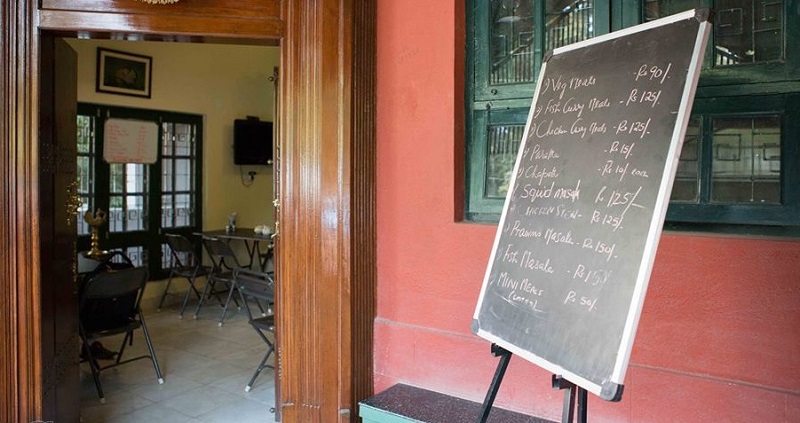 Veg Meals - Rs 90/-
Fish Curry Meals - Rs 125/-
Chicken Curry Meals - Rs 125/-
Parotta - Rs 15/-
Chapati - Rs 10/ each
Squid masala Rs 125/-
Rs 125/-
Prawns Masala - Rs 150/-
Fish Masala - Rs
MINI MEALS Rs 50/-